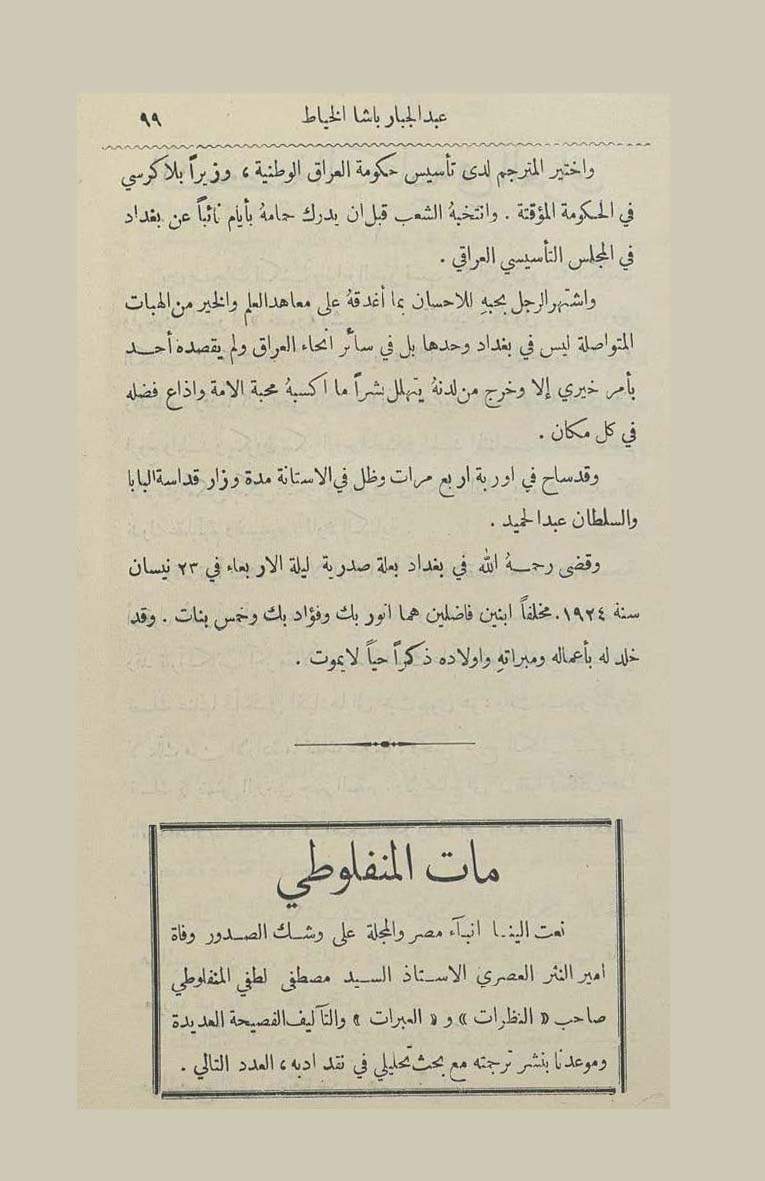 عبدالجبار باشا الخياط ٩٩
واختير المترجم لدى تأسيس حكومة العراق الوطنية ، وزيراً بلا كرسي
في الحكومة المؤقتة . وانتخبهُ الشعب قبل ان يدرك حمامهُ بأيام نائباً عن بغداد
في المجلس التأسيسي العراقي .
واشتهر الرجل بحبهِ للاحسان بما أغدقهُ على معاهد العلم والخير من الهبات
المتواصلة ليس في بغداد وحدها بل في سائر انحاء العراق ولم يقصده أحـد
بأمر خيري إلا وخرج من لدنهُ يتهلل بشراً ما اكسبهُ محبة الامة واذاع فضله
في كل مكان .
وقد ساح في اوربة اربع مرات وظل في الاستانة مدة وزار قداسة البابا
والسلطان عبدالحميد .
وقضى رحمـهُ الله في بغداد بعلة صدرية ليلة الاربعاء في ٢٣ نيسان
سنة ١٩٢٤. مخلفاً ابنين فاضلين هما انور بك وفؤاد بك وخمس بنات . وقد
خلد له بأعماله ومبراتهِ واولاده ذكراً حياً لايموت .
مات المنفلوطي
نعت الينـا انبـآء مصر والمجلة على وشـك الصـدور وفاة
امير النثر العصري الاسـتاذ السـيد مصطفى لطفي المنفلوطي
صاحب « النظرات » و « العبرات » والتآليف الفصيحة العديدة
وموعدنا بنشر ترجمته مع بحث تحليلي في نقد ادبه ، العدد التالي .